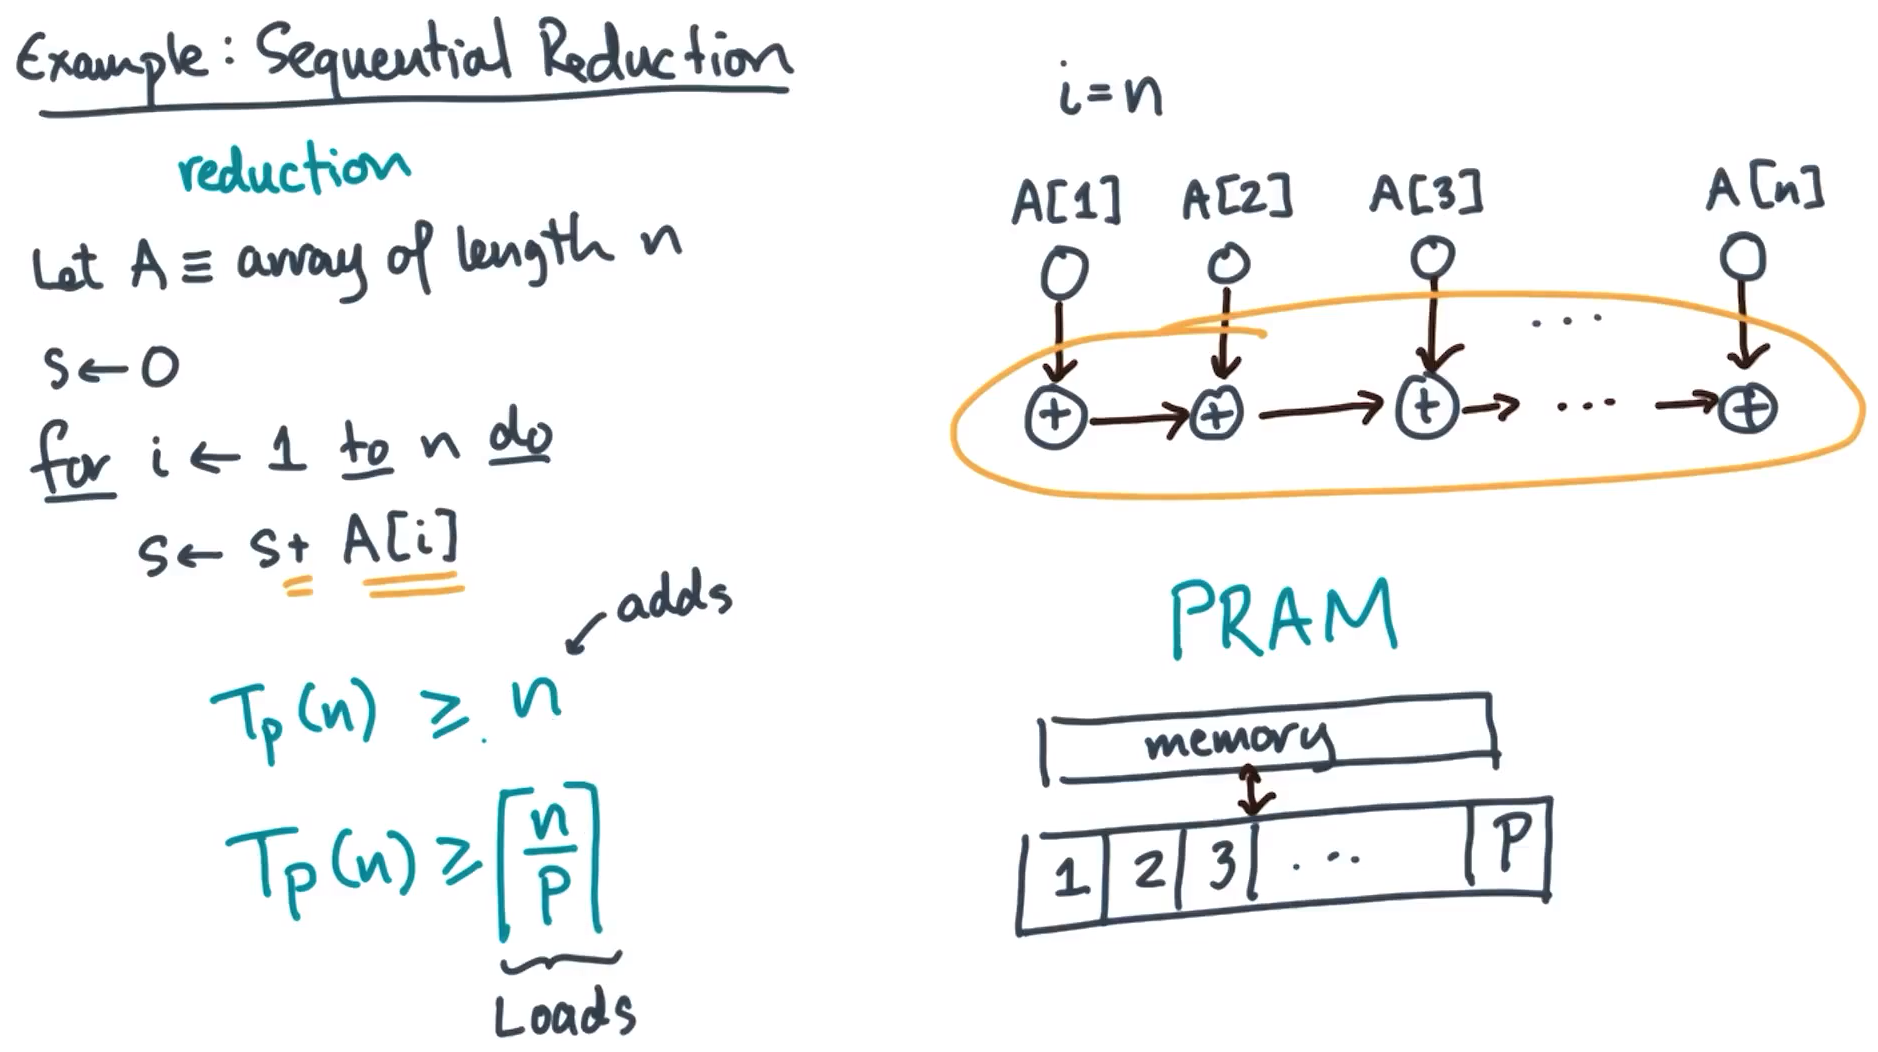 Example: Sequential Reduction
reduction
Let A ≡ array of length n
s ← 0
for i ← 1 to n do
s ← s + A[i]
adds
Tp(n) ≥ n
Tp(n) ≥ ⌈n/p⌉
Loads
i = n
A[1] A[2] A[3] A[n]
...
+ → + → + → ... → +
PRAM
memory
1 2 3 ... P